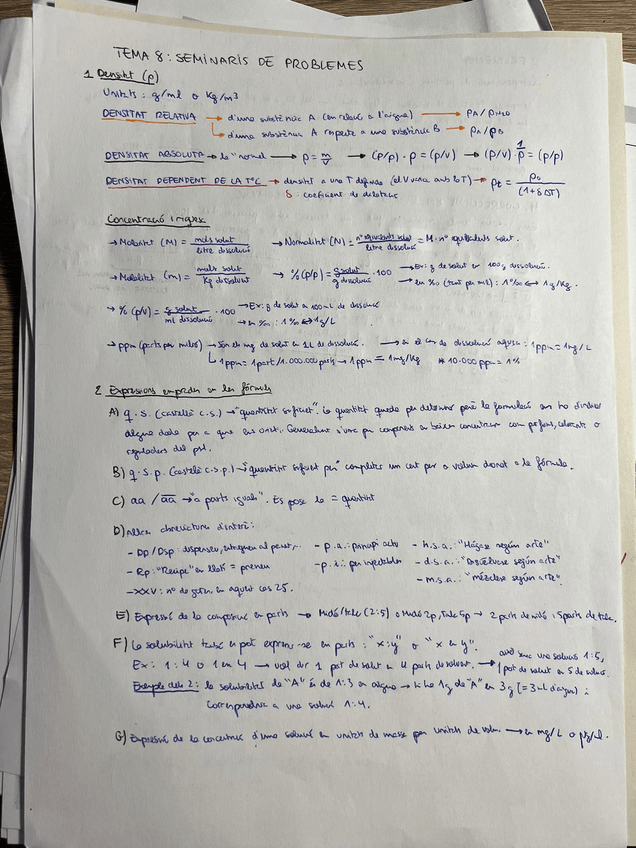 TEMA 8: SEMINARIS DE PROBLEMES
1. Densitat (ρ)
Unitats: g/ml o Kg/m³
DENSITAT RELATIVA → d'una substància A (en relació a l'aigua) → ρA/ρH2O
→ d'una substància A respecte a una substància B → ρA/ρB
DENSITAT ABSOLUTA → la "normal" → ρ = m/v → (p/p) · ρ = (p/v) → (p/v) · 1/ρ = (p/p)
DENSITAT DEPENDENT DE LA TªC → densitat a una T definida (el V varia amb la T) → ρt = ρ0/(1+δΔT)
δ: coeficient de dilatació
Concentració i riquesa
→ Molaritat (M) = mols solut/litre dissolució → Normalitat (N) = nº equivalents solut/litre dissolució = M · nº equivalents solut.
→ Molalitat (m) = mols solut/Kg dissolvent → %(p/p) = g solut/g dissolució · 100 → Ex: g de solut en 100g dissolució.
→ en ‰ (tant per mil): 1‰ ↔ 1g/Kg.
→ % (p/v) = g solut/ml dissolució · 100 → Ex: g de solut a 100mL de dissolució
→ en ‰: 1‰ ↔ 1g/L
→ ppm (parts per milió) → Són els mg de solut en 1L de dissolució. → si és en dissolució aquosa: 1ppm = 1mg/L
1ppm = 1part/1.000.000 parts → 1ppm = 1mg/Kg * 10.000ppm = 1%
2. Expressions emprades en les fórmules
A) q.s. (castellà c.s.) → "quantitat suficient". La quantitat queda per determinar però la formulació ens ho d'indicar
alguna dada per a que ens orienti. Generalment s'usa per components en baixa concentració com perfums, colorants o
reguladors del pH.
B) q.s.p. (castellà c.s.p.) → "quantitat suficient per" completar un cert pes o volum donat a la fórmula.
C) aa / aa → "a parts iguals". Es posa la = quantitat
D) Altres abreviatures d'interès:
- Dp/Dsp: dispenseu, entregueu al pacient,... - p.a.: principi actiu - h.s.a.: "Hágase según arte"
- Rp: "Recipe" en llatí = preneu - p.i.: per injectables - d.s.a.: "Disuélvase según arte"
- XXV: nº de gotes, en aquest cas 25. - m.s.a.: "mézclese según arte".
E) Expressió de la composició en parts → Midó/talc (2:5) o Midó 2p, Talc 5p → 2 parts de midó i 5 parts de talc.
F) La solubilitat també es pot expressar-se en parts: "x:y" o "x en y".
Ex: 1:4 o 1 en 4 → vol dir 1 part de solut en 4 parts de solvent. → amb una solució 1:5,
1 part de solut en 5 de solució.
Exemple dels 2: la solubilitat de "A" és de 1:3 en aigua → hi ha 1g de "A" en 3g [=3ml d'aigua] i
Correspondria a una solució 1:4.
G) Expressió de la concentració d'una solució en unitats de massa per unitats de volum → en mg/L o µg/L.